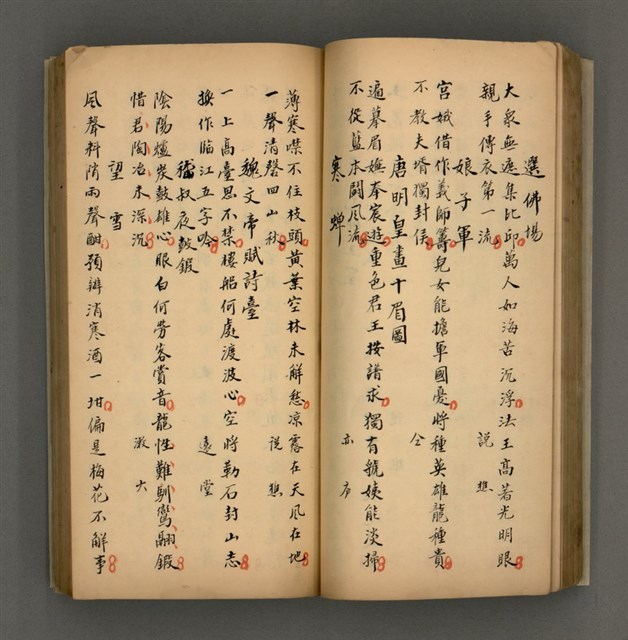 選佛場
大衆無遮集比邱萬人如海苦沉浮法王高著光明眼
親手傳衣第一流
說想
娘子軍
宮娥借作義師籌兒女能擔軍國憂將種英雄龍種貴
不教夫壻獨封侯
仝
唐明皇畫十眉圖
遍摹眉嫵奉宸遊重色君王按譜求獨有虢姨能淡掃
不從藍本鬪風流
亦廎
寒蟬
薄寒噤不住枝頭黃葉空林未解愁凉露在天風在地
一聲清磬四山秋
說想
魏文帝賦詩臺
一上高臺思不禁樓船何處渡波心空將勒石封山志
換作臨江五字吟
遠堂
嵇叔夜鼓鍛
陰陽爐炭鼓雄心眼白何勞客賞音龍性難馴鸞翮鍛
惜君陶冶未深沉
漱六
望雪
風聲料峭雨聲酣預辦消寒酒一坩偏是梅花不解事